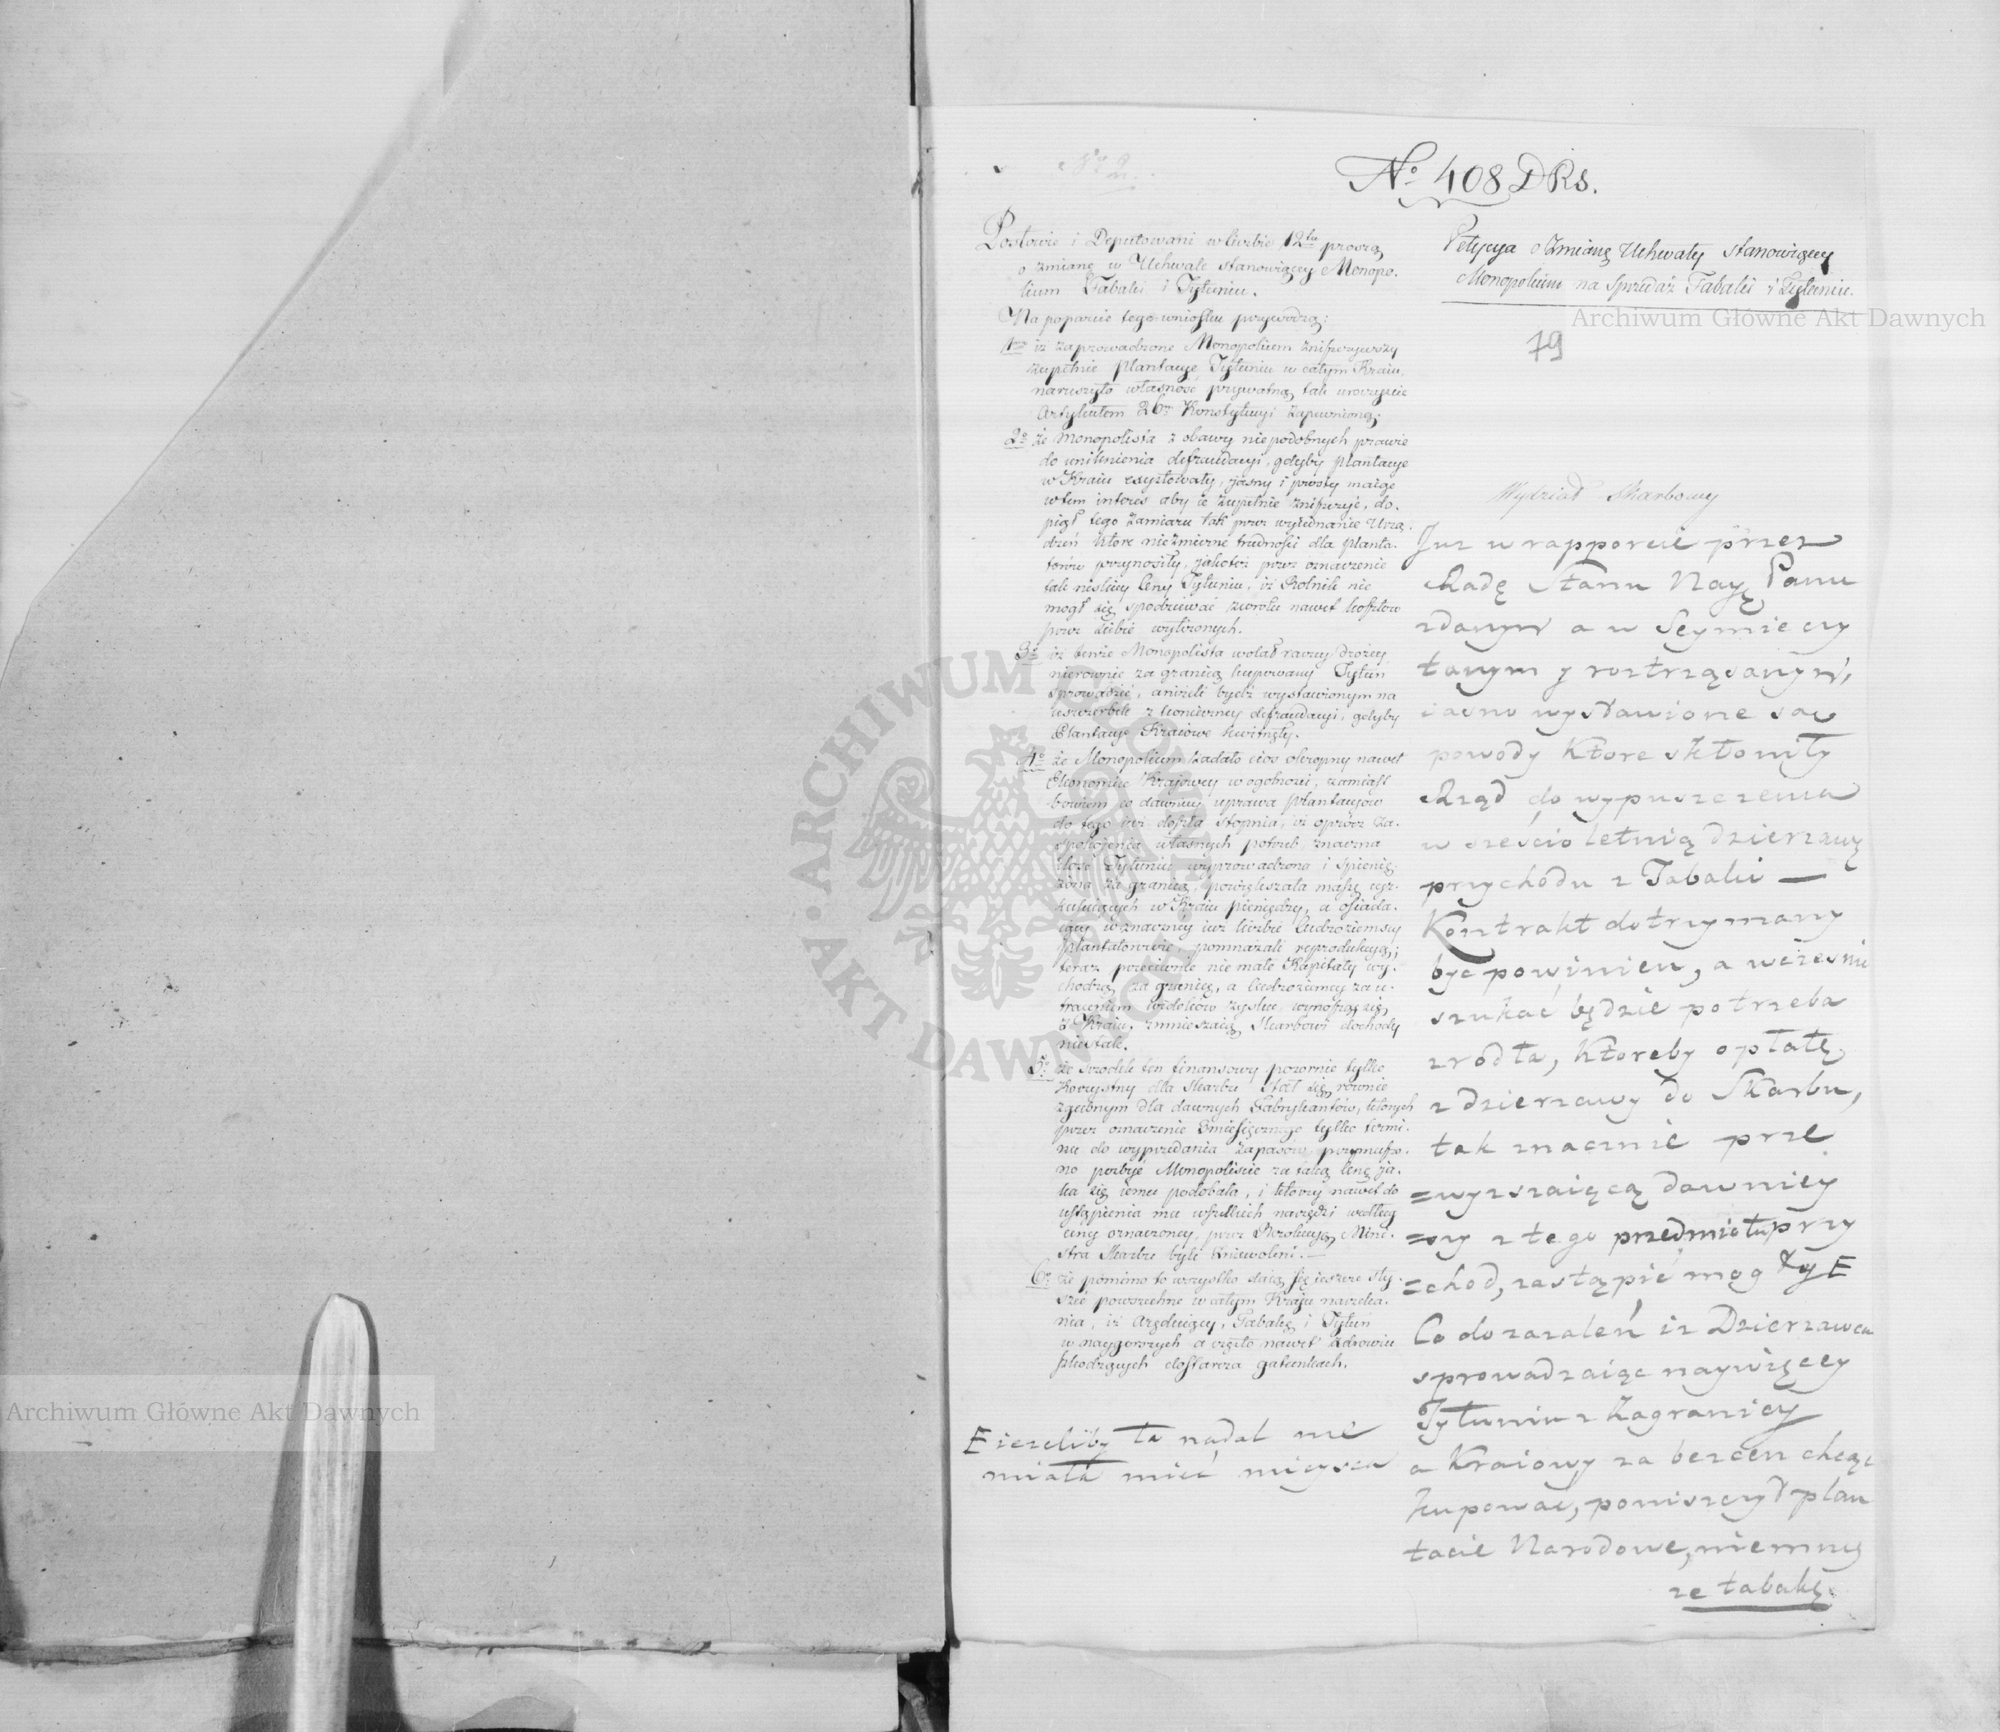 No. 408 DRs.
Posłowie i Deputowani w liczbie 12tu proszą
o zmianę w Uchwale stanowiącey Monopo.
lium Tabaki i Tytuniu.
Na poparcie tego wniosku przywodzą:
1mo iż zaprowadzone Monopolium zniszczywszy
zupełnie plantacye Tytuniu w całym Kraiu,
naruszyło własność prywatną, tak uroczyście
Artykułem 26m Konstytucyi zapewnioną;
2o że Monopolista z obawy niepodobnych prawie
do uniknienia defraudacyi, gdyby plantacye
w Kraiu exystowały, jasny i prosty maiąc
w tem interes aby ie zupełnie zniszczyć, do.
piął tego zamiaru tak przez wyiednanie Urzą.
dzeń które niezmierne trudności dla planta.
torów przynosiły, jakoteż przez oznaczenie
tak niskiey Ceny Tytuniu, iż Rolnik nie
mógł się spodziewać zwrotu nawet kosztów
przez siebie wyłożonych.
3o iż tenże Monopolista wolał raczey drożey
nierównie za granicą kupowany Tytuń
sprowadzić, aniżeli bydź wystawionym na
uszczerbek z konieczney defraudacyi, gdyby
Plantacye Kraiowe kwitnęły.
4o że Monopolium zadało cios okropny nawet
Ekonomice Krajowey w ogólności, zamiast
bowiem co dawniey uprawa plantacyów
do tego iuż doszła stopnia, iż oprócz za.
spokojenia własnych potrzeb, znaczna
ilość Tytuniu wyprowadzona i spienię.
żona za granicą, powiększała massę cyr.
kuluiących w Kraiu pieniędzy, a osiada.
iący w znaczney iuż liczbie Cudzoziemscy
plantatorowie, pomnażali reprodukcyą;
teraz przeciwnie nie małe Kapitały wy.
chodzą za granicę, a Cudzoziemcy za u.
traceniem widoków zysku, wynoszą się
z Kraiu, zmnieszaią Skarbowi dochody
niestałe.
5o że srodek ten finansowy pozornie tylko
korzystny dla Skarbu stał się równie
zgubnym dla dawnych Fabrykantów, których
przez oznaczenie 3miesięcznego tylko termi.
nu do wyprzedania zapasów przymuszo.
no pozbyć Monopoliście za taką cenę ja.
ka się iemu podobała, i którzy nawet do
ustąpienia mu wszelkich narzędzi według
ceny oznaczoney, przez Rezolucyą Mini.
stra Skarbu byli zniewoleni. —
6o że pomimo to wszystko daią się ieszcze sły.
szeć powszechne w całym Kraju narzeka.
nia, iż Arędujący, Tabakę i Tytuń
w naygorszych a często nawet zdrowiu
szkodzących dostarcza gatunkach.
E ieżeliby ta nadal nie
miała mieć mieysca
Petycya o Zmianę Uchwały stanowiącey
Monopolium na Sprzedaż Tabaki i Tytuniu.
79
Wydział Skarbowy
Już w rapporcie przez
Radę Stanu Nayj. Panu
zdanym a w Seymie czy
tanym y roztrząsanym,
iasno wystawione są
powody które skłoniły
Rząd do wypuszczenia
w sześcio letnią dzierżawę
przychodu z Tabaki —
Kontrakt dotrzymany
być powinien, a wcześnie
szukać będzie potrzeba
źródła, któreby opłatę
z dzierżawy do Skarbu,
tak znacznie prze
=wyższaiącą dawniey
=szy z tego przedmiotu przy
=chod, zastąpić mogły E
Co do zażaleń iż Dzierżawca
sprowadzaiąc naywięcey
Tytuniu z Zagranicy
a Kraiowy za bezcen chcąc
kupować, poniszczył plan
tacie Narodowe, niemniey
że tabakę
Archiwum Główne Akt Dawnych
Archiwum Główne Akt Dawnych
ARCHIWUM GŁÓWNE AKT DAWNYCH